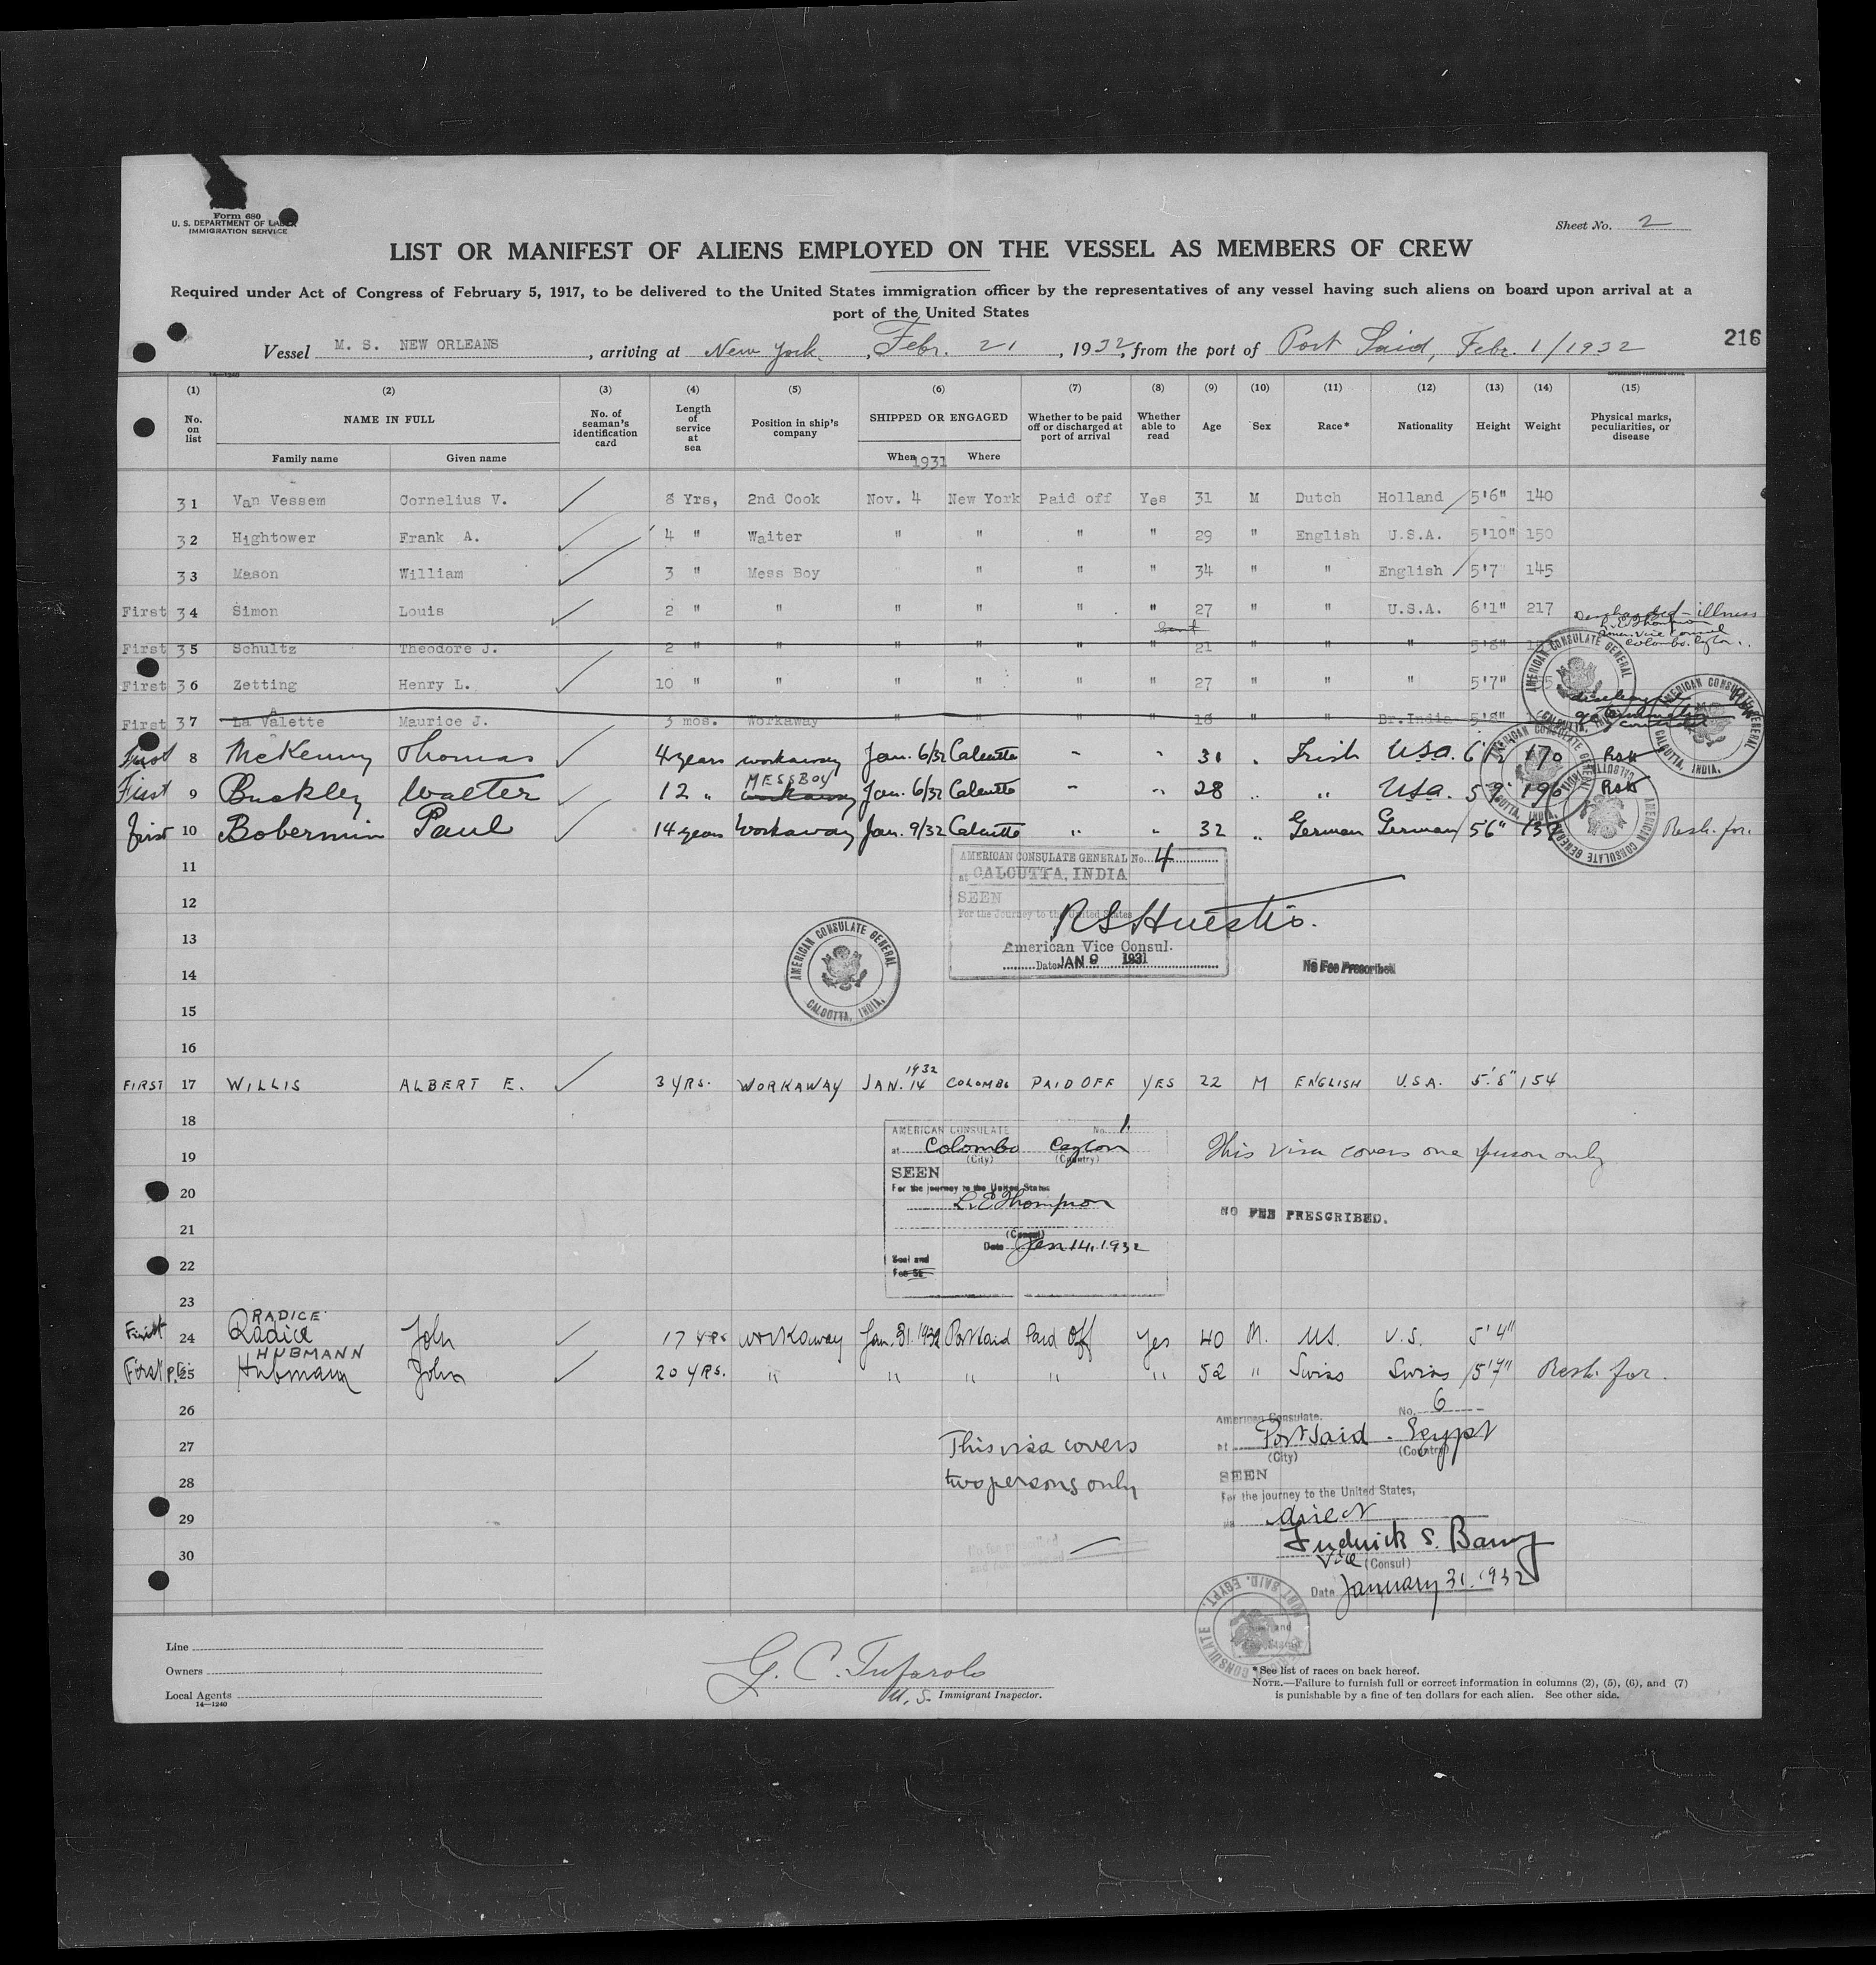 Form 680
U. S. DEPARTMENT OF LABOR
IMMIGRATION SERVICE
Sheet No. 2
LIST OR MANIFEST OF ALIENS EMPLOYED ON THE VESSEL AS MEMBERS OF CREW
Required under Act of Congress of February 5, 1917, to be delivered to the United States immigration officer by the representatives of any vessel having such aliens on board upon arrival at a
port of the United States
Vessel M. S. NEW ORLEANS, arriving at New York, Febr. 21, 1932, from the port of Port Said, Febr. 1/1932
216
14—1240
(1) (2) (3) (4) (5) (6) (7) (8) (9) (10) (11) (12) (13) (14) (15)
No. on list NAME IN FULL No. of seaman's identification card Length of service at sea Position in ship's company SHIPPED OR ENGAGED Whether to be paid off or discharged at port of arrival Whether able to read Age Sex Race* Nationality Height Weight Physical marks, peculiarities, or disease
Family name Given name When 1931 Where
31 Van Vessem Cornelius V. 8 Yrs, 2nd Cook Nov. 4 New York Paid off Yes 31 M Dutch Holland 5'6" 140
32 Hightower Frank A. 4 " Waiter " " " " 29 " English U.S.A. 5'10" 150
33 Mason William 3 " Mess Boy " " " 34 " " English 5'7 145
First 34 Simon Louis 2 " " " " " " 27 " " U.S.A. 6'1" 217
Discharged - illness
L. E. Thompson
Amer. Vice Consul
Colombo. Ceylon.
First 35 Schultz Theodore J. 2 " " " " " " 21 " " " 5'8"
First 36 Zetting Henry L. 10 " " " " " " 27 " " " 5'7"
First 37 La Valette Maurice J. 3 mos. Workaway " " " " 18 " " Br.India 5'8"
First 8 McKenny Thomas 4 years workaway Jan. 6/32 Calcutta " " 31 " Irish USA. 170 RSH
MESSBOY
First 9 Buckley Walter 12 " workaway Jan. 6/32 Calcutta " " 28 " " USA. 5'9" 190 RSH
First 10 Bobermin Paul 14 years Workaway Jan. 9/32 Calcutta " " 32 " German German 5'6" Resh. for.
AMERICAN CONSULATE GENERAL
CALCUTTA, INDIA.
11
AMERICAN CONSULATE GENERAL No. 4
at CALCUTTA, INDIA
12
SEEN
For the Journey to the United States
R S Huestis.
13
American Vice Consul.
Date JAN 9 1931
No Fee Prescribed
AMERICAN CONSULATE GENERAL
CALCUTTA, INDIA.
14
15
16
FIRST 17 WILLIS ALBERT E. 3 YRS. WORKAWAY JAN. 14 1932 COLOMBO PAID OFF YES 22 M ENGLISH U.S.A. 5'.8" 154
18
AMERICAN CONSULATE No. 1.
at Colombo Ceylon
(City) (Country)
19
This visa covers one person only
SEEN
For the journey to the United States
20
L. E. Thompson
NO FEE PRESCRIBED.
21
(Consul)
Date Jan 14, 1932
22
Seal and
Fee
23
RADICE
First 24 Radice John 17 YRS workaway Jan. 31. 1932 Port Said Paid Off Yes 40 M. US. U.S. 5'4"
HUBMANN
First 25 Hubmann John 20 YRS. " " " " " 52 " Swiss Swiss 5'7" Resh. for.
26
American Consulate. No. 6
at Port Said - Egypt
(City) (Country)
27
This visa covers
28
two persons only
SEEN
For the journey to the United States,
29
direct
Frederick S. Barny
30
Vice (Consul)
Date January 31. 1932
CONSULATE
PORT SAID, EGYPT.
Line
Owners
Local Agents
14—1240
G. C. Tufarolo
U. S. Immigrant Inspector.
*See list of races on back hereof.
NOTE.—Failure to furnish full or correct information in columns (2), (5), (6), and (7)
is punishable by a fine of ten dollars for each alien. See other side.